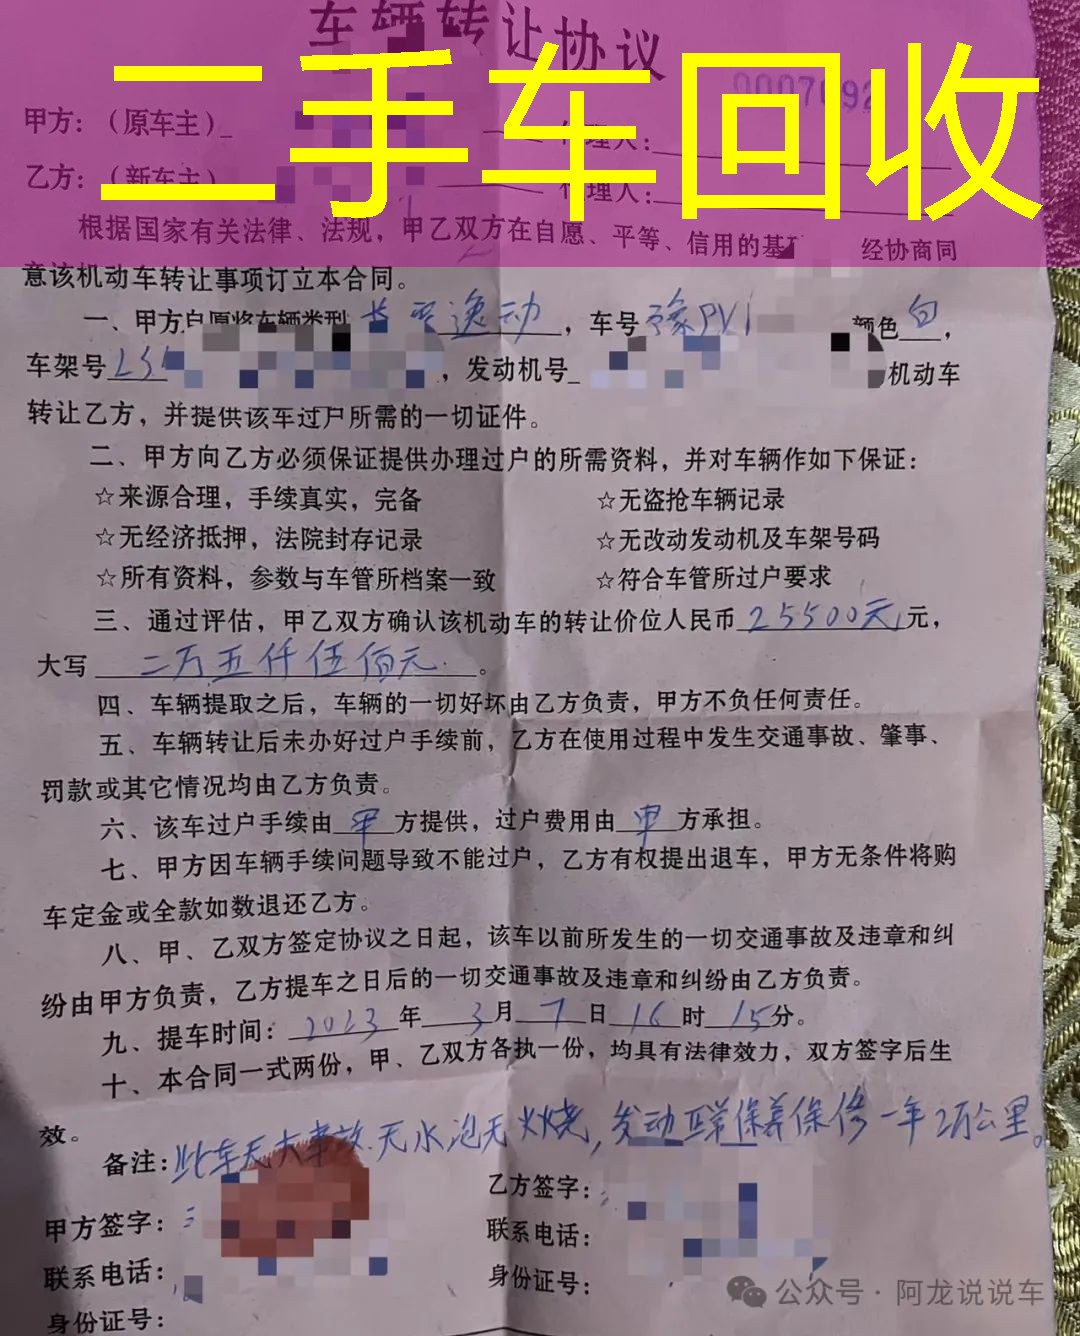 车辆转让协议
二手车回收
甲方：（原车主） 理人：
乙方：（新车主） 代理人：
根据国家有关法律、法规，甲乙双方在自愿、平等、信用的基 经协商同
意该机动车转让事项订立本合同。
一、甲方自愿将车辆类型 长安逸动，车号 豫PV 颜色白，
车架号LS ，发动机号 机动车
转让乙方，并提供该车过户所需的一切证件。
二、甲方向乙方必须保证提供办理过户的所需资料，并对车辆作如下保证：
☆来源合理，手续真实，完备 ☆无盗抢车辆记录
☆无经济抵押，法院封存记录 ☆无改动发动机及车架号码
☆所有资料，参数与车管所档案一致 ☆符合车管所过户要求
三、通过评估，甲乙双方确认该机动车的转让价位人民币 25500元 元，
大写 二万五仟伍佰元 。
四、车辆提取之后，车辆的一切好坏由乙方负责，甲方不负任何责任。
五、车辆转让后未办好过户手续前，乙方在使用过程中发生交通事故、肇事、
罚款或其它情况均由乙方负责。
六、该车过户手续由 甲 方提供，过户费用由 甲 方承担。
七、甲方因车辆手续问题导致不能过户，乙方有权提出退车，甲方无条件将购
车定金或全款如数退还乙方。
八、甲、乙双方签定协议之日起，该车以前所发生的一切交通事故及违章和纠
纷由甲方负责，乙方提车之日后的一切交通事故及违章和纠纷由乙方负责。
九、提车时间： 2023 年 3 月 7 日 16 时 15 分。
十、本合同一式两份，甲、乙双方各执一份，均具有法律效力，双方签字后生
效。
备注：此车无大事故.无水泡无火烧，发动正常保养保修一年2万公里。
甲方签字： 乙方签字：
联系电话： 联系电话：
身份证号： 身份证号：
公众号·阿龙说说车